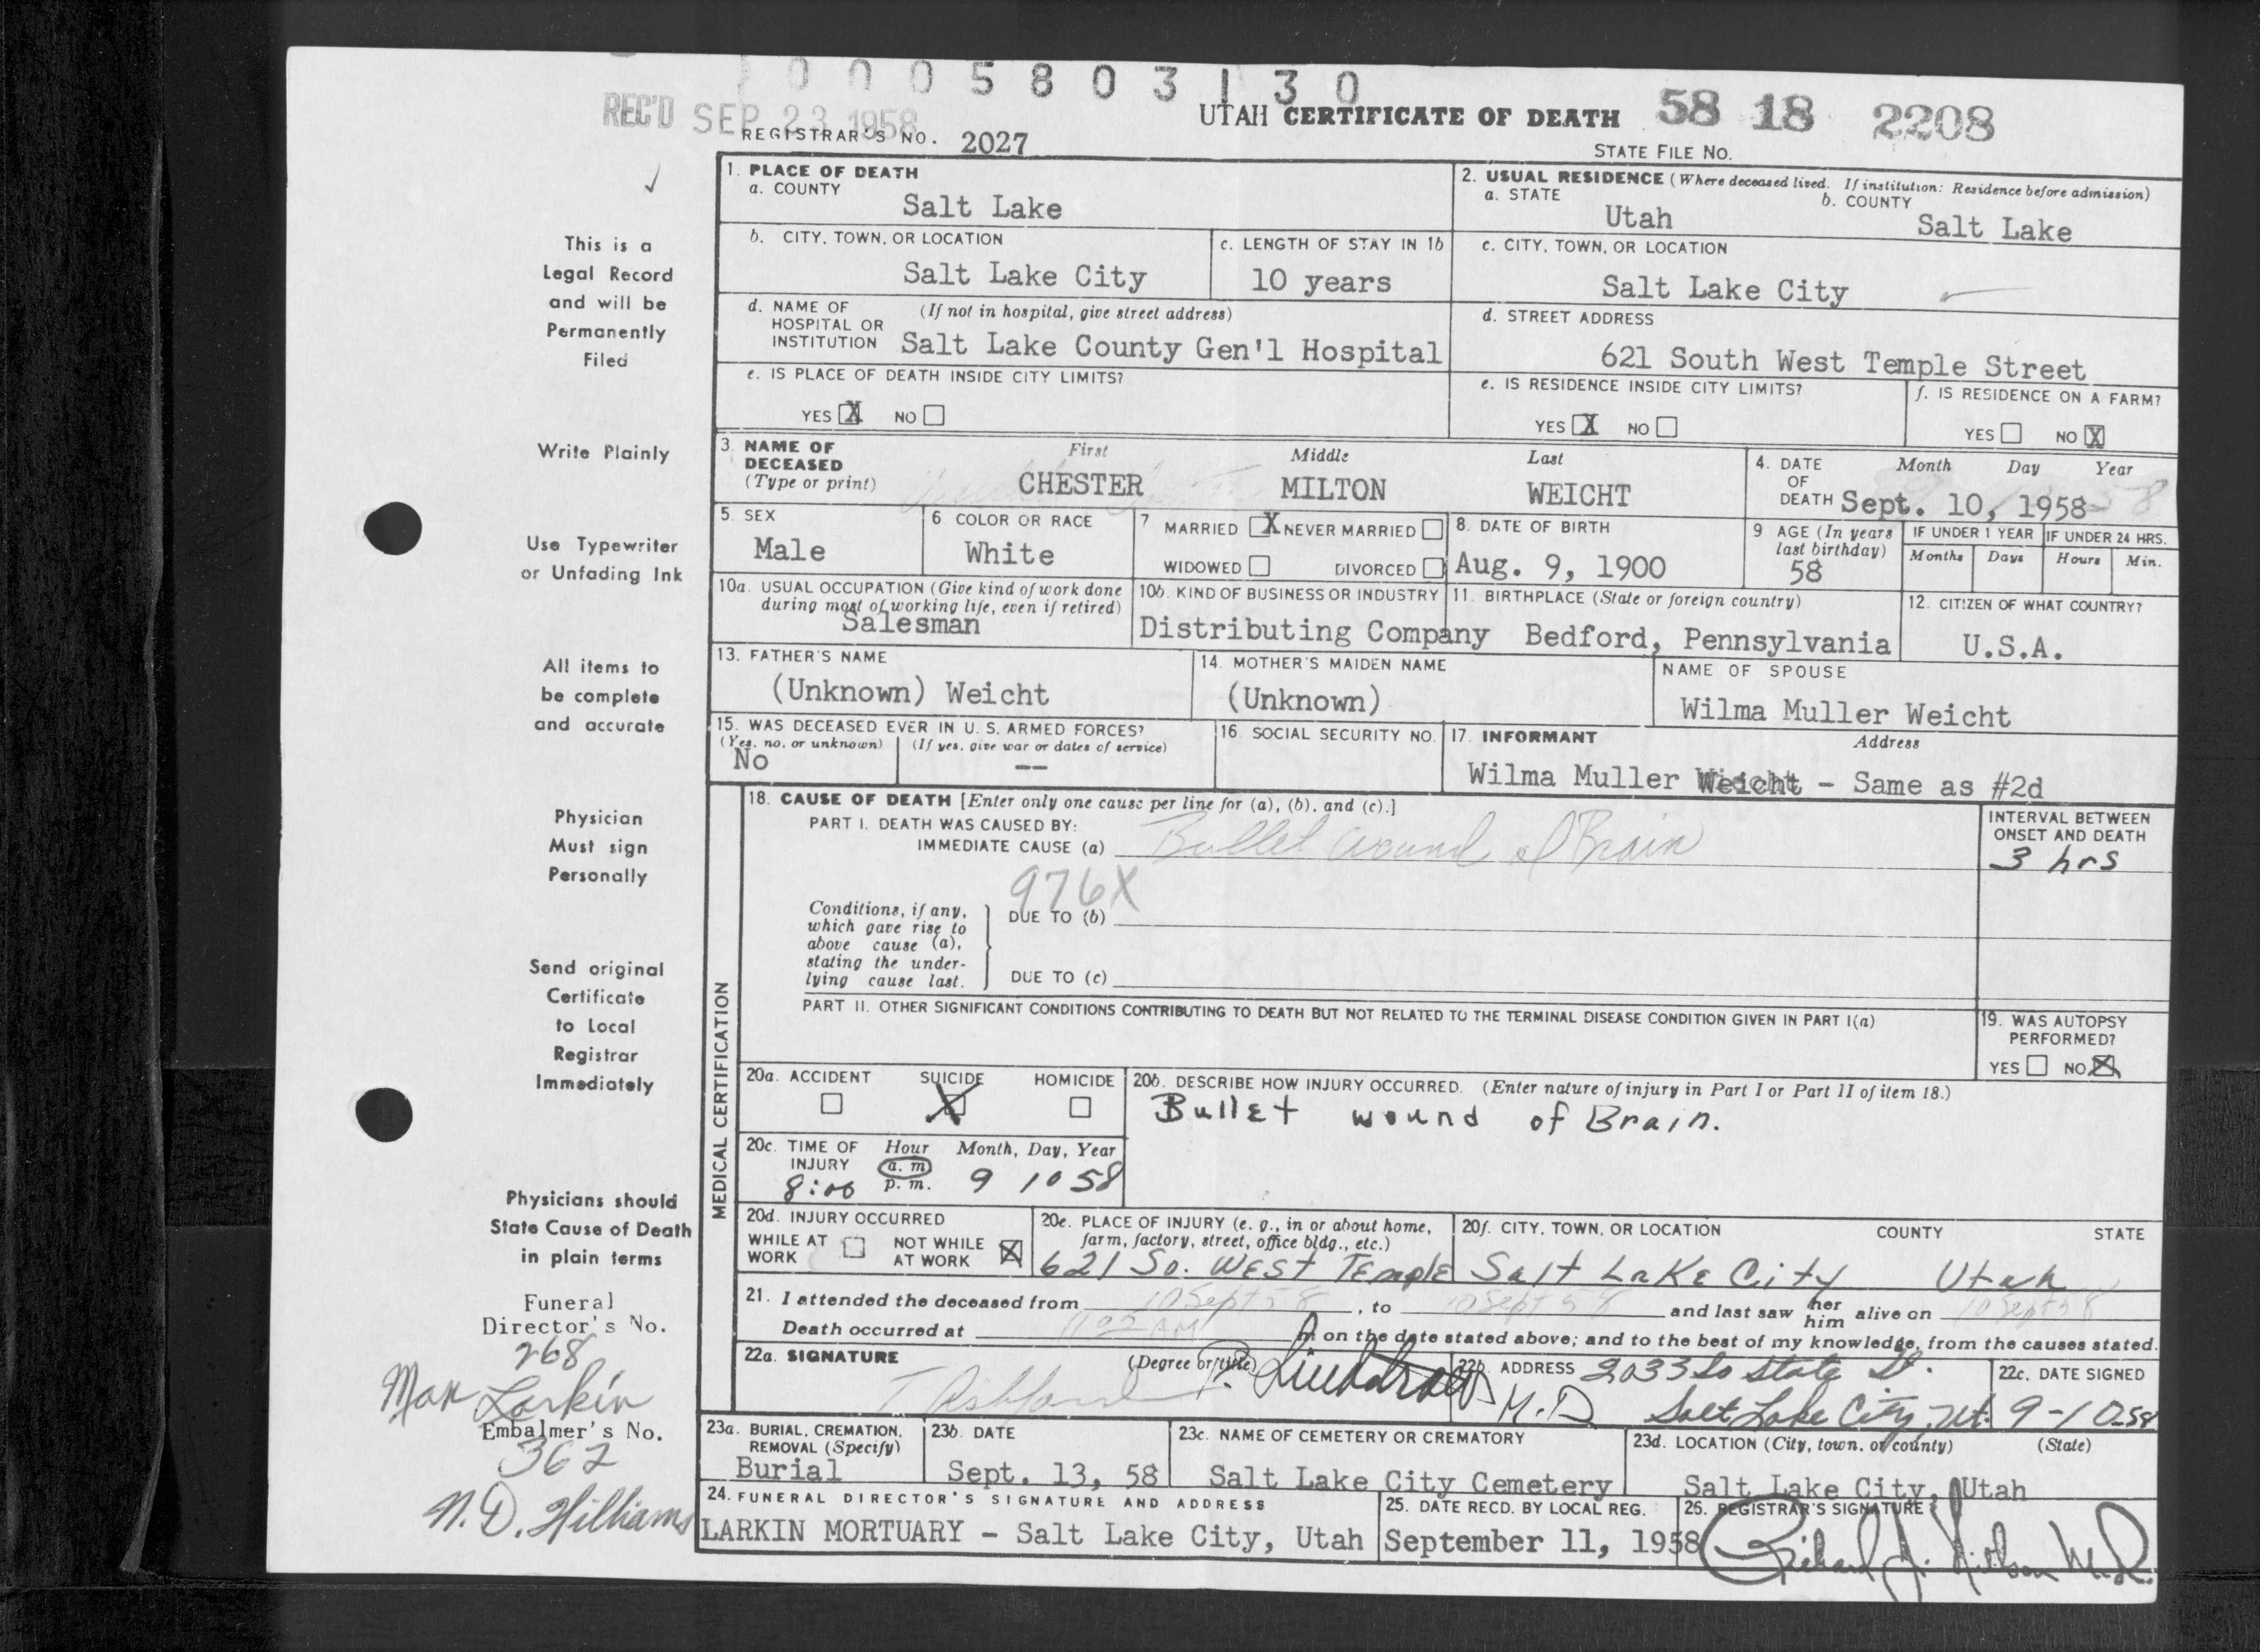 0005803130
REC'D SEP 23 1958
UTAH CERTIFICATE OF DEATH 58 18 2208
REGISTRAR'S NO. 2027
STATE FILE NO.
1. PLACE OF DEATH
a. COUNTY
Salt Lake
2. USUAL RESIDENCE (Where deceased lived. If institution: Residence before admission)
a. STATE
Utah
b. COUNTY
Salt Lake
b. CITY, TOWN, OR LOCATION
Salt Lake City
c. LENGTH OF STAY IN 1b
10 years
c. CITY, TOWN, OR LOCATION
Salt Lake City
d. NAME OF HOSPITAL OR INSTITUTION
(If not in hospital, give street address)
Salt Lake County Gen'l Hospital
d. STREET ADDRESS
621 South West Temple Street
e. IS PLACE OF DEATH INSIDE CITY LIMITS?
YES X NO
e. IS RESIDENCE INSIDE CITY LIMITS?
YES X NO
f. IS RESIDENCE ON A FARM?
YES NO X
3. NAME OF DECEASED
(Type or print)
First Middle Last
CHESTER MILTON WEICHT
4. DATE OF DEATH
Month Day Year
Sept. 10, 1958
5. SEX
Male
6 COLOR OR RACE
White
7 MARRIED X NEVER MARRIED
WIDOWED DIVORCED
8. DATE OF BIRTH
Aug. 9, 1900
9 AGE (In years last birthday)
58
IF UNDER 1 YEAR
Months Days
IF UNDER 24 HRS.
Hours Min.
10a. USUAL OCCUPATION (Give kind of work done during most of working life, even if retired)
Salesman
10b. KIND OF BUSINESS OR INDUSTRY
Distributing Company
11. BIRTHPLACE (State or foreign country)
Bedford, Pennsylvania
12. CITIZEN OF WHAT COUNTRY?
U.S.A.
13. FATHER'S NAME
(Unknown) Weicht
14. MOTHER'S MAIDEN NAME
(Unknown)
NAME OF SPOUSE
Wilma Muller Weicht
15. WAS DECEASED EVER IN U. S. ARMED FORCES?
(Yes, no, or unknown) (If yes, give war or dates of service)
No --
16. SOCIAL SECURITY NO.
17. INFORMANT Address
Wilma Muller Weicht - Same as #2d
MEDICAL CERTIFICATION
18. CAUSE OF DEATH [Enter only one cause per line for (a), (b), and (c).]
PART I. DEATH WAS CAUSED BY:
IMMEDIATE CAUSE (a) Bullet wound of Brain
INTERVAL BETWEEN ONSET AND DEATH
3 hrs
976X
Conditions, if any, which gave rise to above cause (a), stating the underlying cause last.
DUE TO (b)
DUE TO (c)
PART II. OTHER SIGNIFICANT CONDITIONS CONTRIBUTING TO DEATH BUT NOT RELATED TO THE TERMINAL DISEASE CONDITION GIVEN IN PART I(a)
19. WAS AUTOPSY PERFORMED?
YES NO X
20a. ACCIDENT SUICIDE HOMICIDE
X
20b. DESCRIBE HOW INJURY OCCURRED. (Enter nature of injury in Part I or Part II of item 18.)
Bullet wound of Brain.
20c. TIME OF INJURY
Hour Month, Day, Year
a. m.
p. m.
8:00 9 10 58
20d. INJURY OCCURRED
WHILE AT WORK NOT WHILE AT WORK X
20e. PLACE OF INJURY (e. g., in or about home, farm, factory, street, office bldg., etc.)
621 So. West Temple
20f. CITY, TOWN, OR LOCATION COUNTY STATE
Salt Lake City Utah
21. I attended the deceased from 10 Sept 58, to 10 Sept 58 and last saw her him alive on 10 Sept 58
Death occurred at 1102 AM m on the date stated above; and to the best of my knowledge, from the causes stated.
22a. SIGNATURE (Degree or title)
M.D
22b. ADDRESS 2033 So State St.
Salt Lake City, Ut.
22c. DATE SIGNED
9-10-58
23a. BURIAL, CREMATION, REMOVAL (Specify)
Burial
23b. DATE
Sept. 13, 58
23c. NAME OF CEMETERY OR CREMATORY
Salt Lake City Cemetery
23d. LOCATION (City, town, or county) (State)
Salt Lake City, Utah
24. FUNERAL DIRECTOR'S SIGNATURE AND ADDRESS
LARKIN MORTUARY - Salt Lake City, Utah
25. DATE RECD. BY LOCAL REG.
September 11, 1958
26. REGISTRAR'S SIGNATURE
This is a
Legal Record
and will be
Permanently
Filed
Write Plainly
Use Typewriter
or Unfading Ink
All items to
be complete
and accurate
Physician
Must sign
Personally
Send original
Certificate
to Local
Registrar
Immediately
Physicians should
State Cause of Death
in plain terms
Funeral
Director's No.
268
Max Larkin
Embalmer's No.
362